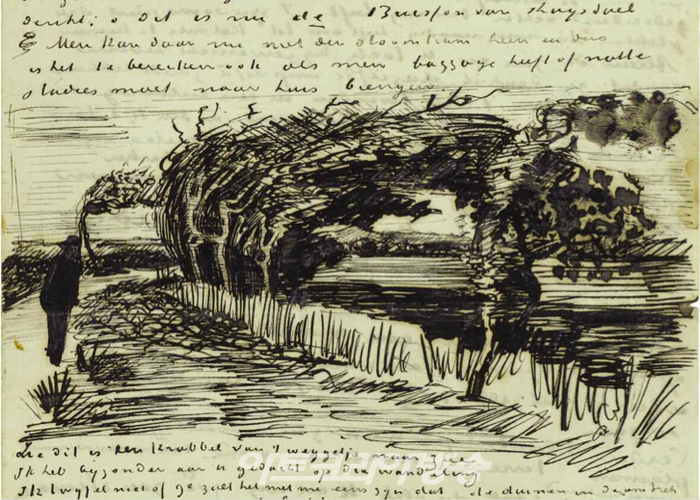 Dit is nu de Buisson van Ruysdael
Men kan daar nu met den stoomtram heen en dus
is het te bereiken ook als men baggage heeft of natte
studies moet naar huis brengen.
Zie dit is een krabbel van 't weggetje naar
Ik heb byzonder aan U gedacht op die wandeling
Ik twyfel niet of ge zult het met me eens zyn dat de duinen in